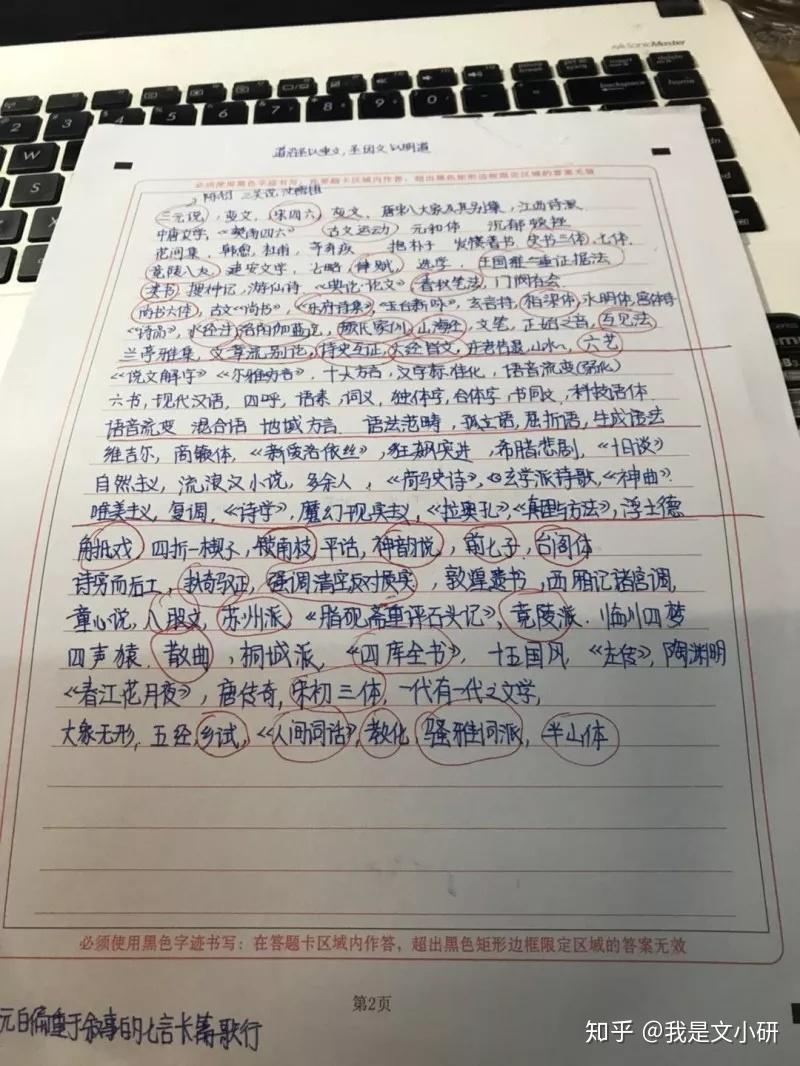 backspace
home
道沿圣以垂文,圣因文以明道
必须使用黑色字迹书写:在答题卡区域内作答,超出黑色矩形边框限定区域的答案无效
三元说,骈文,宋四六,散文,唐宋八大家及其别集,江西诗派
中唐文学,《樊南四六》 古文运动 元和体 沉郁顿挫
花间集,韩愈,杜甫, 抱朴子 发愤著书 七体
竟陵八友 建安文学,七略,俳赋, 选学, 王国维二重证据法
类书 搜神记,游仙诗,《典论·论文》春秋笔法,门阀
尚书六体,古文《尚书》,《乐府诗集》,《玉台新咏》,玄言诗,柏梁体,永明体,宫体诗
《诗品》,水经注,洛阳伽蓝记,颜氏家训,山海经,文笔,正始之音,互见法
兰亭雅集,文章流别论,诗史互证,六经皆文,庄老告退,山水 六艺
《说文解字》《尔雅》,十大方言,汉字标准化,语音流变(弱化)
六书,现代汉语,四呼,语素,词义,独体字,合体字,书同文,科技语体
语音流变 混合语 地域方言 语法范畴,孤立语,屈折语,生成语法
维吉尔,商籁体,《新爱洛依丝》,狂飙突进,希腊悲剧,《十日谈》
自然主义,流浪汉小说,多余人,《荷马史诗》,玄学派诗歌,《神曲》
唯美主义,复调,《诗学》,魔幻现实主义,《拉奥孔》,《真理与方法》,浮士德
角抵戏 四折一楔子,锁南枝 平话,神韵说,前七子,台阁体
诗穷而后工,执奇驭正,强调清空反对质实,敦煌遗书,西厢记诸宫调,
童心说,八股文,苏州派,《脂砚斋重评石头记》,竟陵派.临川四梦
四声猿,散曲,桐城派,《四库全书》,十五国风,《左传》,陶渊明
《春江花月夜》,唐传奇,宋初三体,一代有一代之文学,
大象无形,五经,乡试,《人间词话》,教化,骚雅词派,半山体
必须使用黑色字迹书写:在答题卡区域内作答,超出黑色矩形边框限定区域的答案无效
第2页
元白偏重于叙事的七言长篇歌行
知乎 @我是文小研